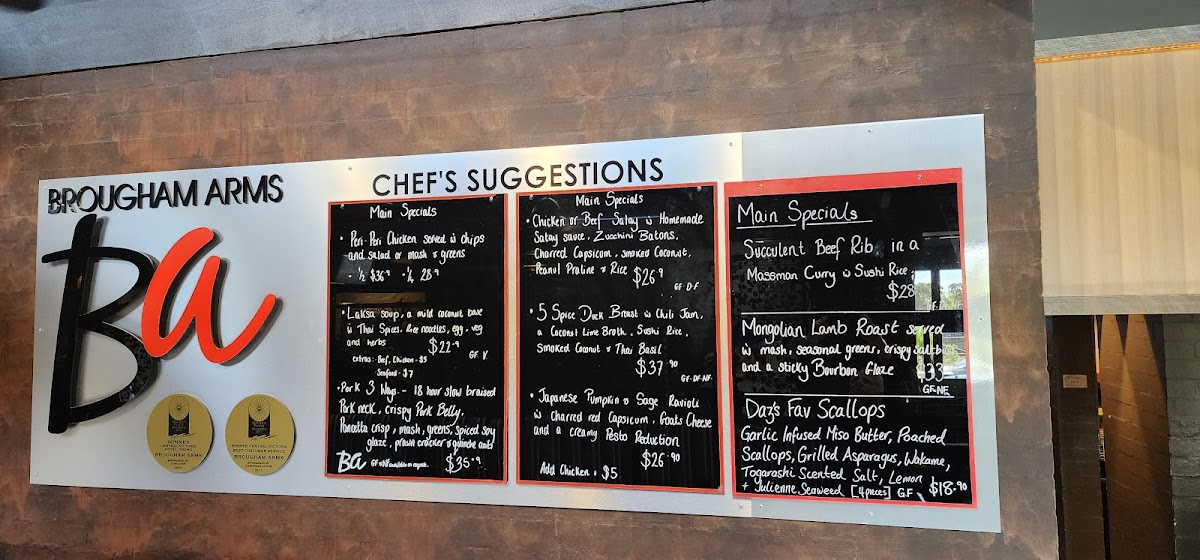 BROUGHAM ARMS
Ba
WINNER
BROUGHAM ARMS
BROUGHAM ARMS
CHEF'S SUGGESTIONS
Main Specials
• Peri-Peri Chicken served w chips
and salad or mash & greens
- ½ $36.9 - ¼ 28.9
• Laksa soup, a mild coconut base
w Thai Spices, Rice noodles, egg, veg
and herbs $22.9
extras:- Beef, Chicken - $5
Seafood - $7
GF V
• Pork 3 Ways - 18 hour slow braised
Pork neck, crispy Pork Belly,
Pancetta crisp, mash, greens, spiced soy
glaze, prawn cracker &
Ba GF available on request. $35.9
Main Specials
• Chicken or Beef Satay w Homemade
Satay sauce, Zucchini Batons,
Charred Capsicum, smoked Coconut,
Peanut Praline & Rice $26.9
GF·DF
• 5 Spice Duck Breast w Chili Jam,
a Coconut Lime Broth, Sushi Rice,
Smoked Coconut & Thai Basil
$37.90
GF·DF·NF
• Japanese Pumpkin & Sage Ravioli
w charred red Capsicum, Goats Cheese
and a creamy Pesto Reduction
$26.90
Add Chicken . $5
Main Specials
Succulent Beef Rib in a
Massman Curry w Sushi Rice.
$28
Mongolian Lamb Roast served
w mash, seasonal greens, crispy
and a sticky Bourbon Glaze $33
GF.NF
Daz's Fav Scallops
Garlic Infused Miso Butter, Poached
Scallops, Grilled Asparagus, Wakame,
Togarashi Scented Salt, Lemon
+ Julienne Seaweed [4 pieces] G.F $18.90